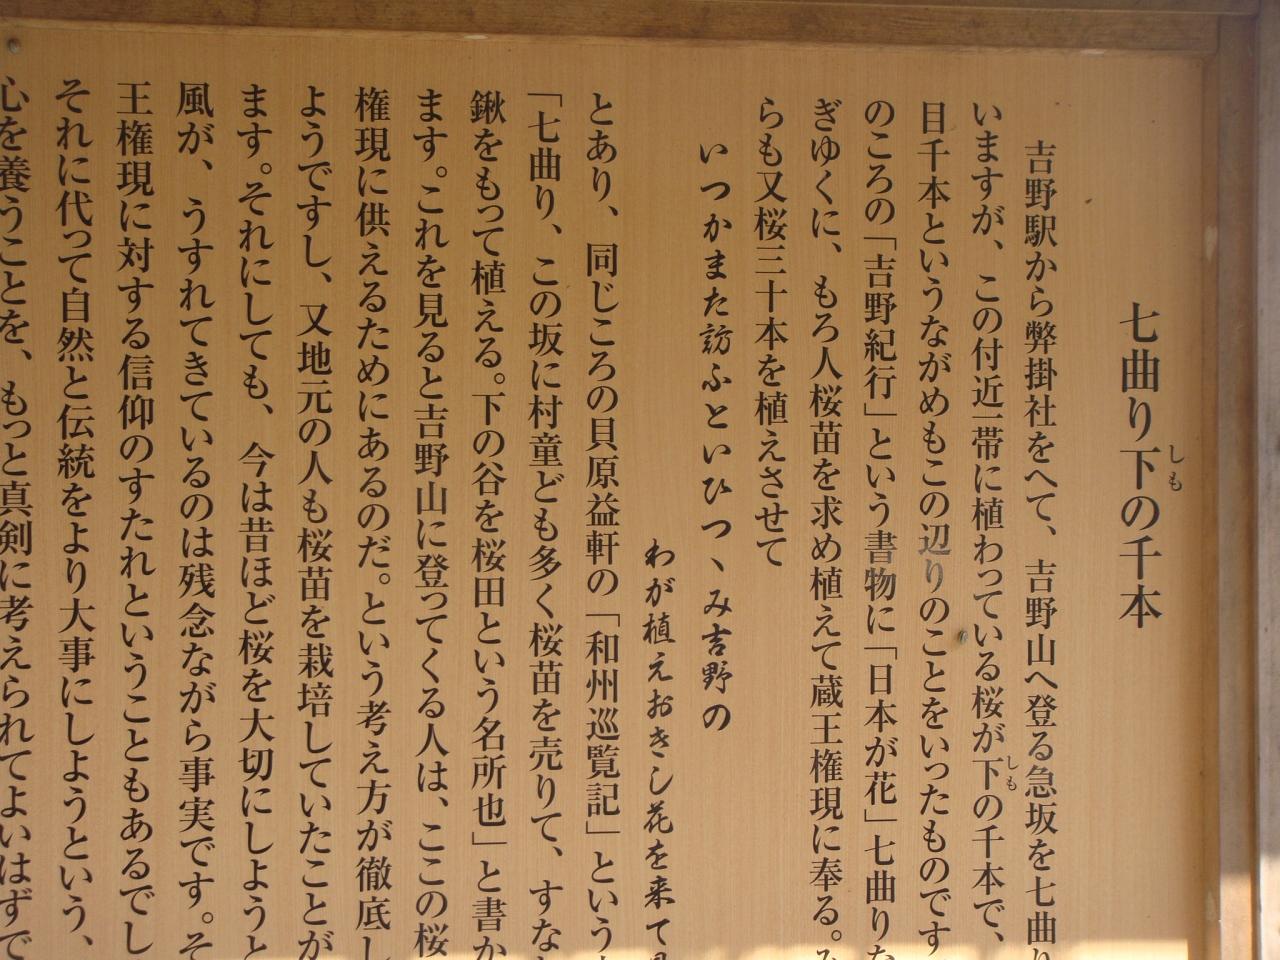 七曲り下の千本
しも
吉野駅から弊掛社をへて、吉野山へ登る急坂を七曲り
いますが、この付近一帯に植わっている桜が下の千本で、
しも
目千本というながめもこの辺りのことをいったものです
のころの「吉野紀行」という書物に「日本が花」七曲りな
ぎゆくに、もろ人桜苗を求め植えて蔵王権現に奉る。み
らも又桜三十本を植えさせて
いつかまた訪ふといひつゝみ吉野の
わが植えおきし花を来て見
とあり、同じころの貝原益軒の「和州巡覧記」という
「七曲り、この坂に村童ども多く桜苗を売りて、すな
鍬をもって植える。下の谷を桜田という名所也」と書か
ます。これを見ると吉野山に登ってくる人は、ここの桜
権現に供えるためにあるのだ。という考え方が徹底し
ようですし、又地元の人も桜苗を栽培していたことが
ます。それにしても、今は昔ほど桜を大切にしようと
風が、うすれてきているのは残念ながら事実です。そ
王権現に対する信仰のすたれということもあるでし
それに代って自然と伝統をより大事にしようという、
心を養うことを、もっと真剣に考えられてよいはずで